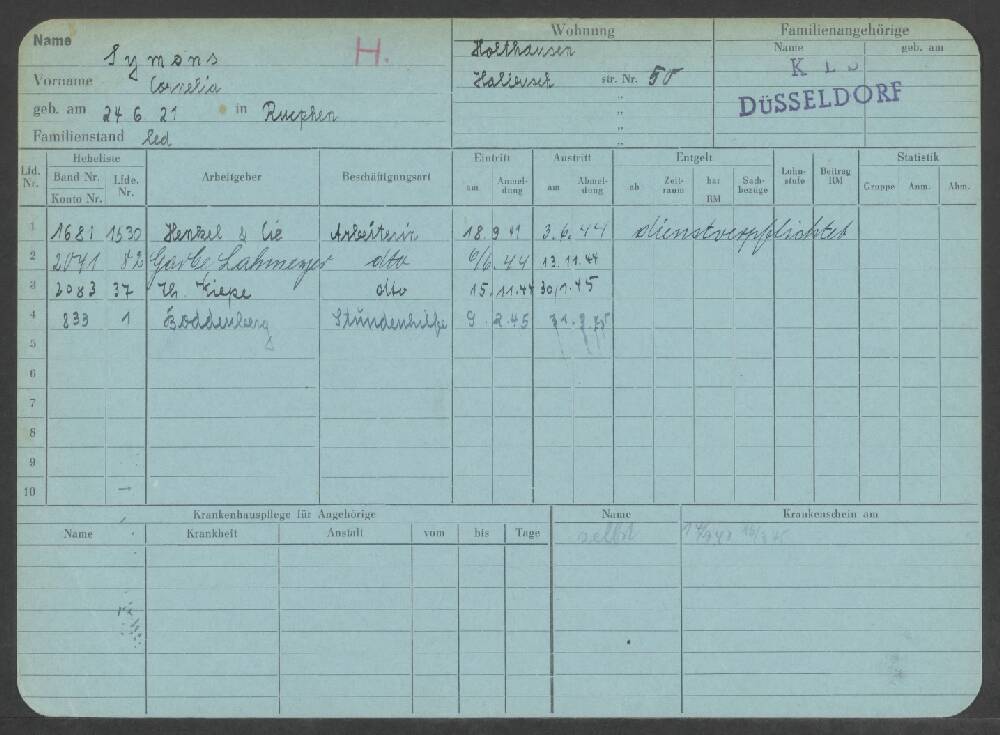 Name Symons H.
Vorname Cornelia
geb. am 24 6 21 in Rucphen
Familienstand led
Wohnung
Holthausen
str. Nr. 50
"
"
"
Familienangehörige
Name geb. am
K L S
DÜSSELDORF
Lfd. Nr. Hebeliste Band Nr. Konto Nr. Lfde. Nr. Arbeitgeber Beschäftigungsart Eintritt am Anmeldung Austritt am Abmeldung Entgelt ab Zeitraum bar RM Sachbezüge Lohnstufe Beitrag RM Statistik Gruppe Anm. Abm.
1 1681 1530 Henkel & Cie Arbeiterin 18.9 41 3.6.44 dienstverpflichtet
2 2041 82 Garbe, Lahmeyer dto 6/6.44 13.11.44
3 2083 37 Th. dto 15.11.44 30.1.45
4 833 1 Boddenberg Stundenhilfe 9.2.45
5
6
7
8
9
10 —
Krankenhauspflege für Angehörige
Name Krankheit Anstalt vom bis Tage
Name Krankenschein am
selbst